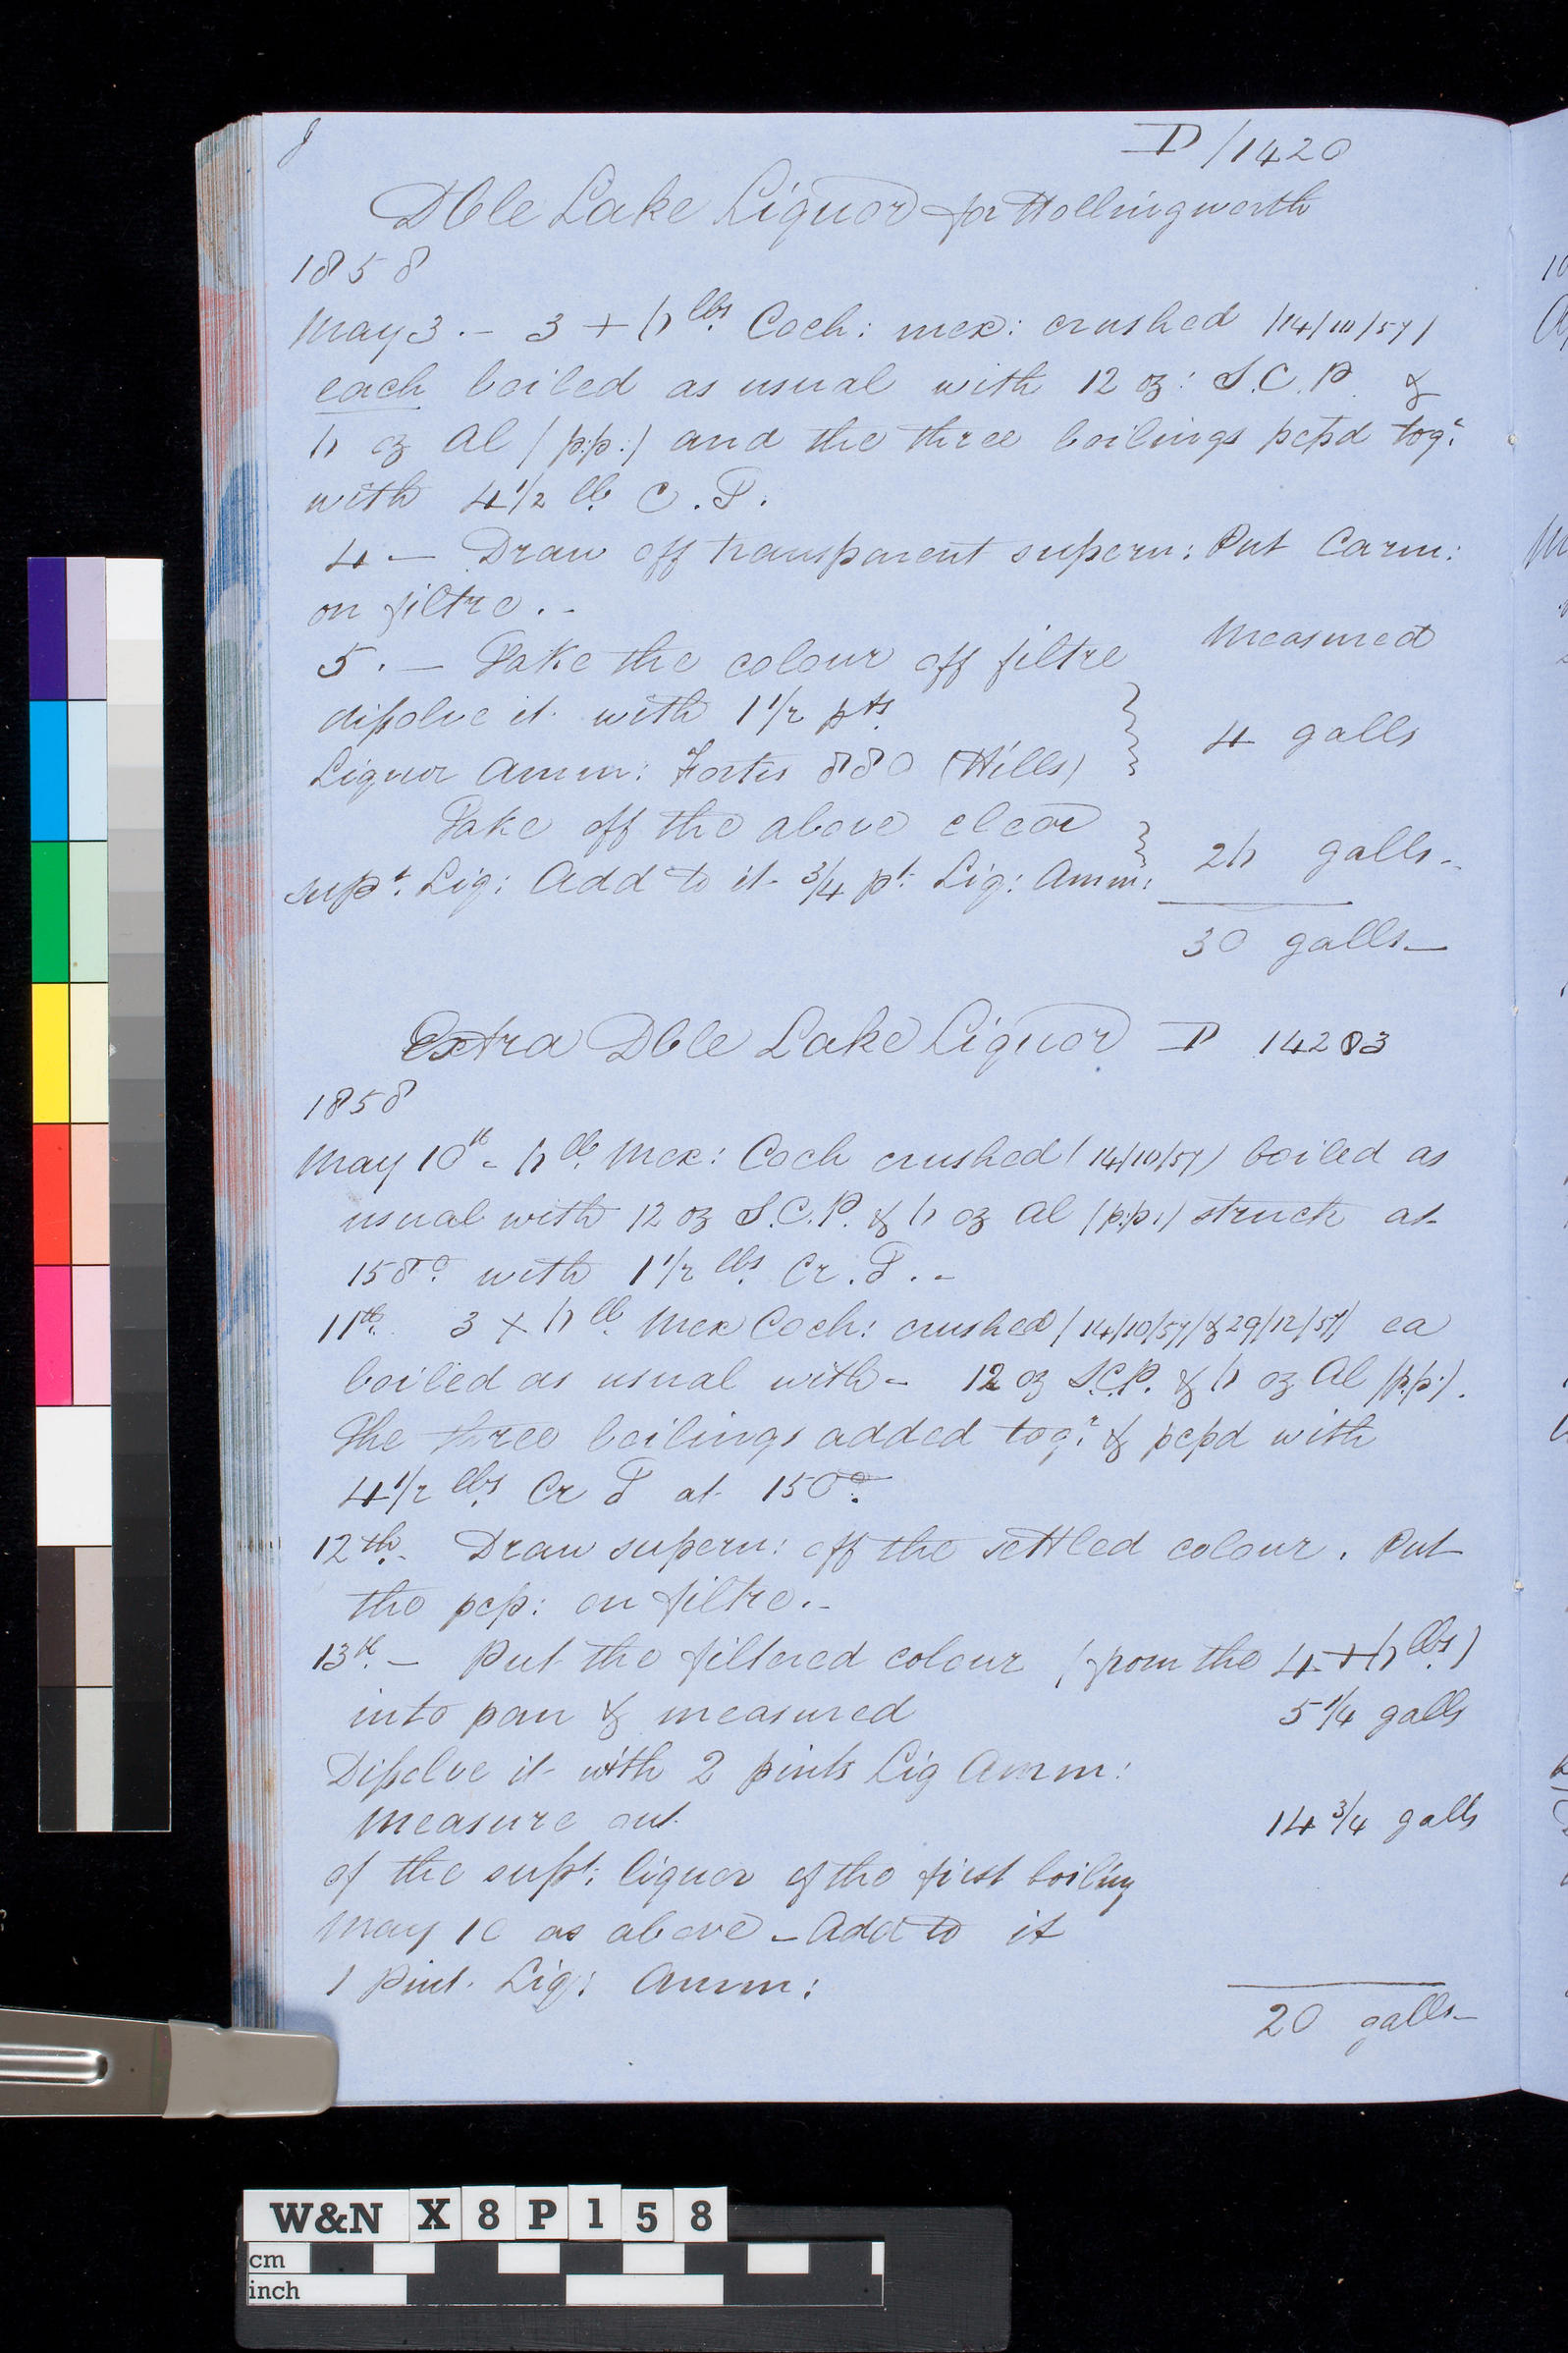 D /1420
Dble Lake Liquor for Hollingworth
1858
May 3. - 3 + 6 lbs. Coch: mex: crushed (14/10/57)
each boiled as usual with 12 oz: S.C.P. &
6 oz Al (p:p:) and the three boilings pcpd togr.
with 4 1/2 lb. C.T.
4 - Draw off transparent supern: Put Carm:
on filtre. -
5. - Take the colour off filtre
Measured
dissolve it with 1 1/2 pts
Liquor Amm: Fortis 880 (Hills)
4 galls
Take off the above clear
supt. Liq: Add to it 3/4 pt: Liq: Amm:
26 galls -
30 galls -
Extra Dble Lake Liquor D 14203
1858
May 10th - 6 lb. Mex: Coch crushed (14/10/57) boiled as
usual with 12 oz S.C.P. & 6 oz Al (p:p:) struck at
158°. with 1 1/2 lbs. Cr. T. -
11th. 3 x 6 lb. Mex Coch: crushed (14/10/57) & 29/12/57) ea
boiled as usual with - 12 oz S.C.P. & 6 oz Al (p.p.).
The three boilings added togr. & pcpd with
4 1/2 lbs. Cr T at 150°.
12th. - Draw supern: off the settled colour. Put
the pcp: on filtre. -
13th. - Put the filtered colour (from the 4 + 6 lbs.)
into pan & measured 5 1/4 galls
Dissolve it with 2 pints Liq Amm:
Measure out 14 3/4 galls
of the supt: liquor of the first boiling
May 10 as above - Add to it
1 Pint. Liq: Amm:
20 galls -
W&N X 8 P 1 5 8
cm
inch